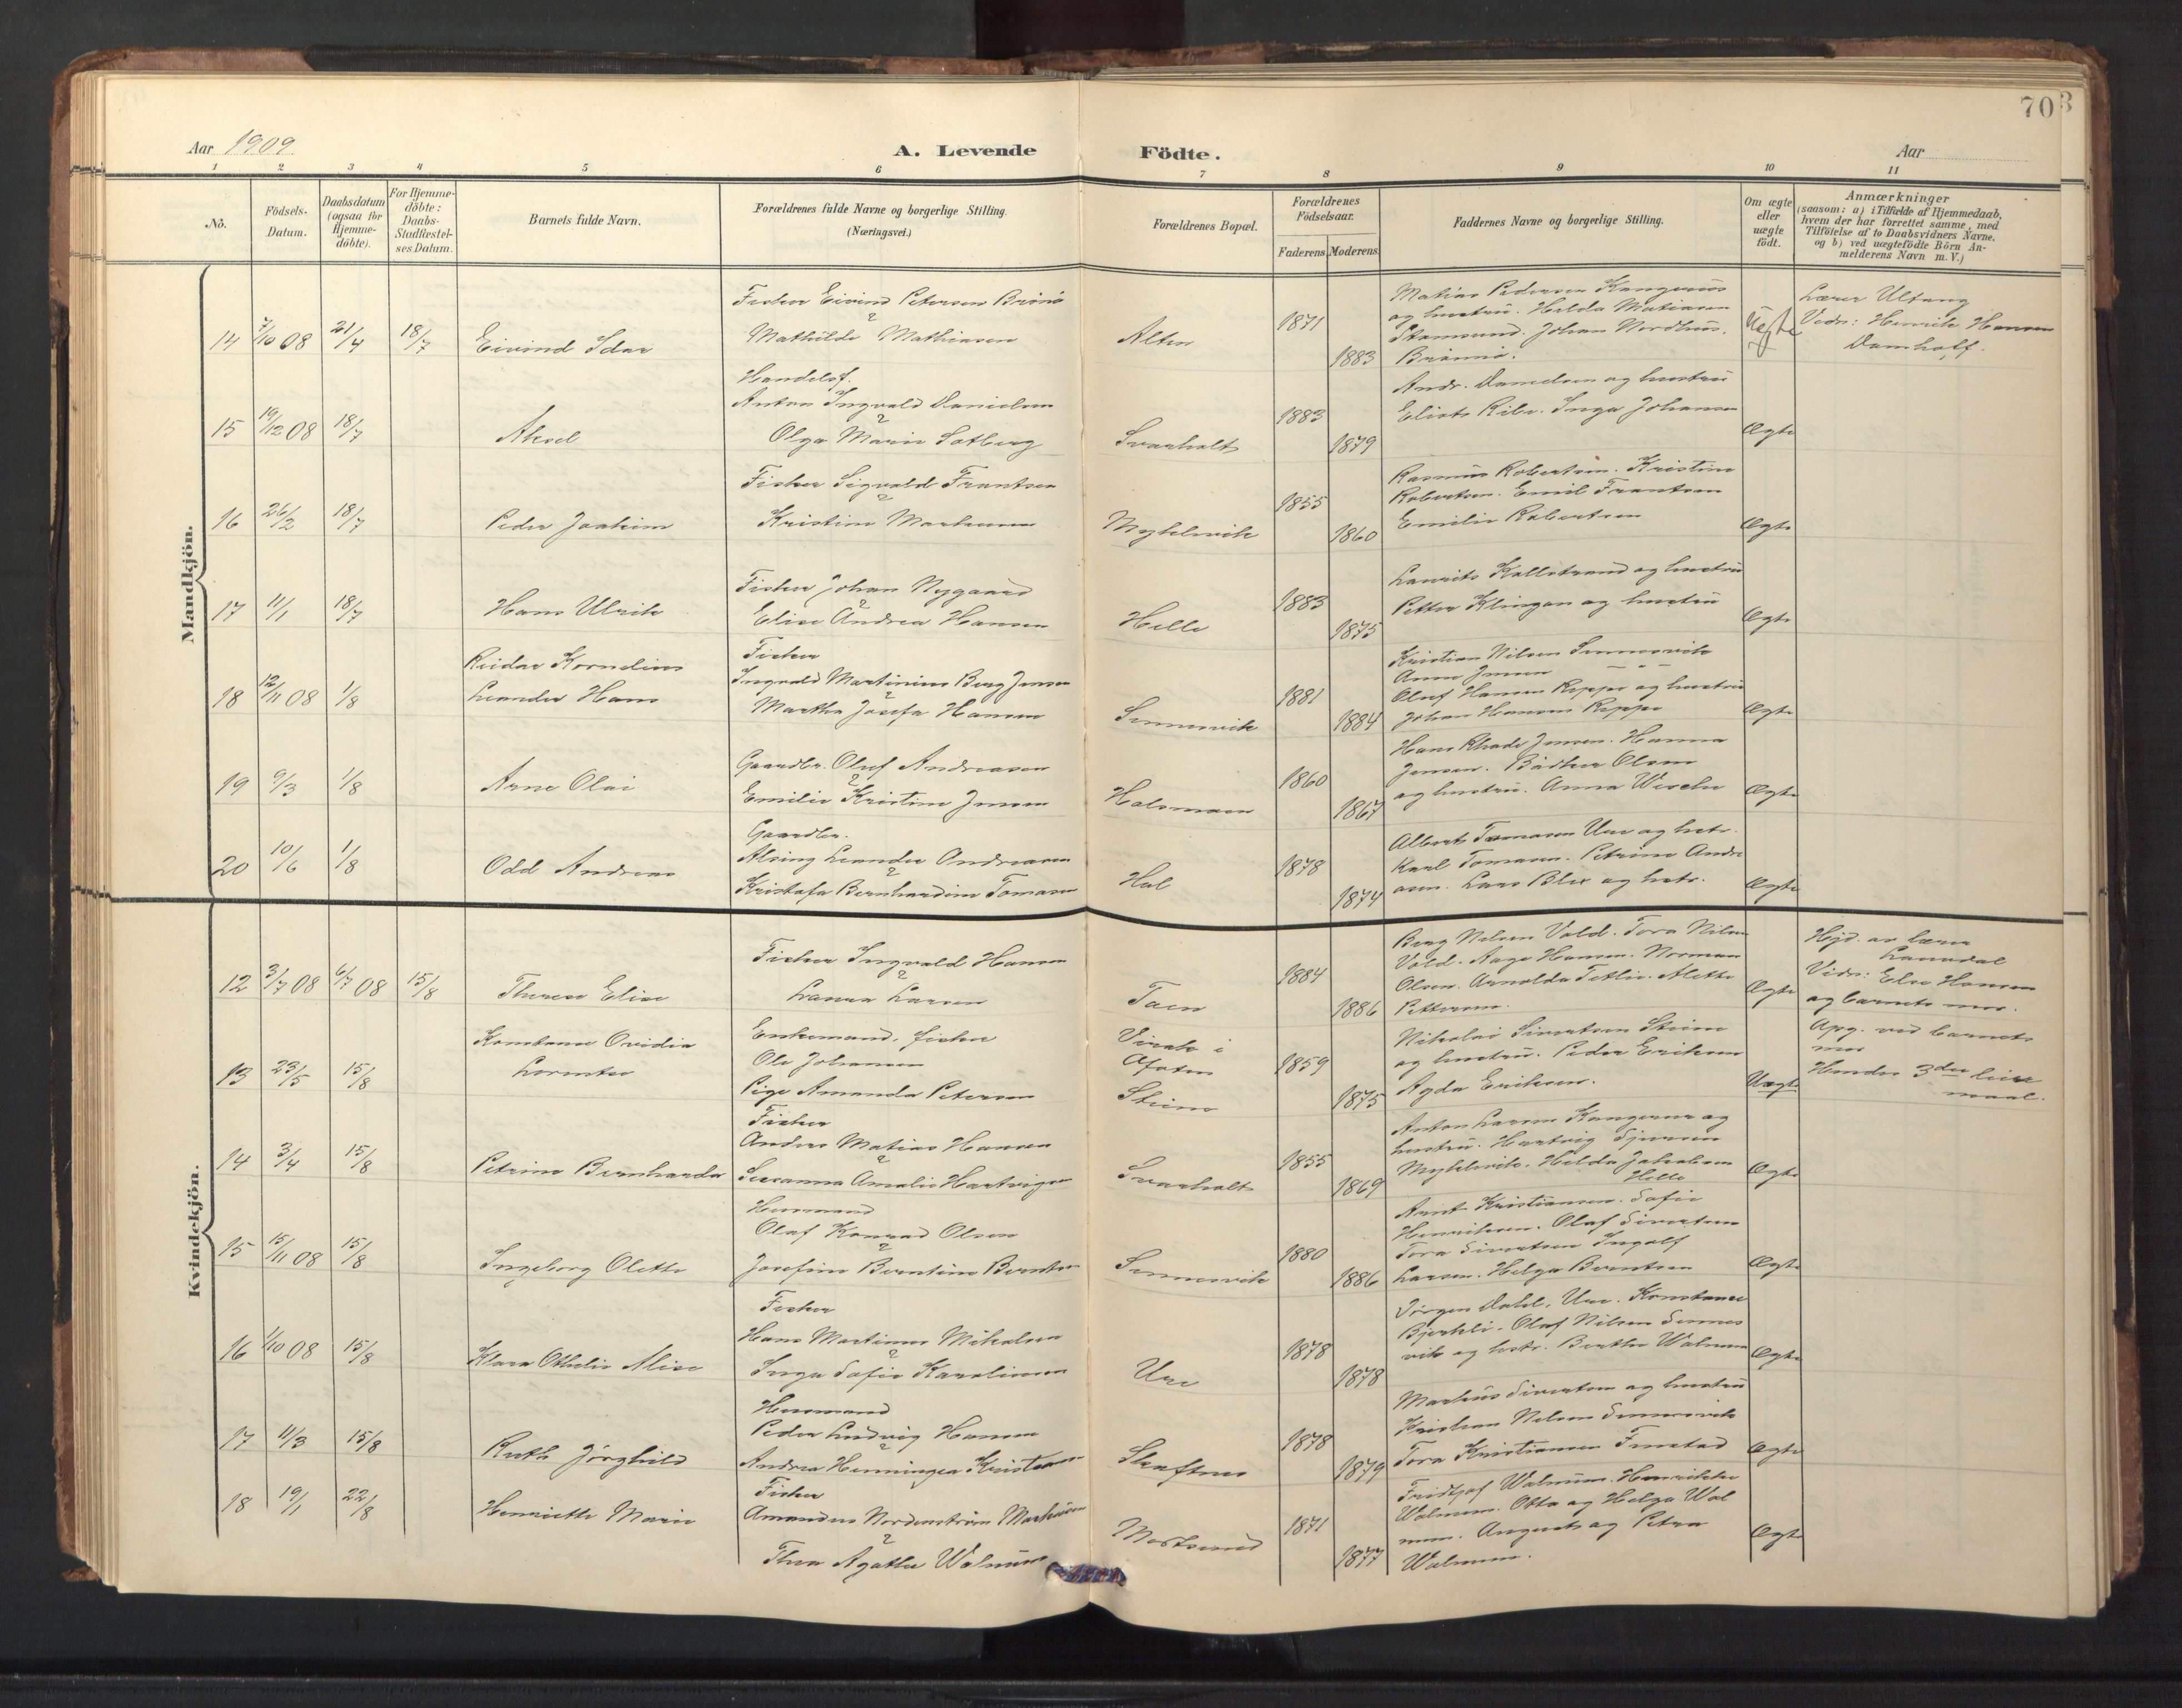 70
3
Aar 1909
A. Levende
Födte.
Aar
1 2 3 4 5 6 7 8 9 10 11
No.
Födsels-
Datum.
Daabsdatum
(ogsaa for
Hjemme-
döbte).
For Hjemme-
döbte:
Daabs-
Stadfæstel-
ses Datum.
Barnets fulde Navn.
Forældrenes fulde Navne og borgerlige Stilling.
(Næringsvei.)
Forældrenes Bopæl.
Forældrenes
Födselsaar.
Faderens
Moderens
Faddernes Navne og borgerlige Stilling.
Om ægte
eller
uægte
födt.
Anmærkninger
(saasom: a) i Tilfælde af Hjemmedaab,
hvem der har forrettet samme, med
Tilföielse af to Daabsvidners Navne,
og b) ved uægtefödte Börn An-
melderens Navn m. V.)
Mandkjön.
14 7/10 08 21/4 18/7
Eivind Idar
Fisker Eivind Petersen Brönö
Mathilde Mathiasen
Alten
1871
1883
Matias Pedersen
og hustru. Helda Matiasen
Stamsund. Johan Nordhus.
Brönnö.
Uægte
Lærer Ultang
Vidn: Henrik Hansen
15 19/12 08 18/7
Aksel
Handelsf.
Anton Ingvald Danielsen
&
Olga Marie Solberg
Svarholt
1883
1879
Andr. Danielsen og hustru
Elise Ribe. Inga Johansen
Ægte
16 26/2 18/7
Peder Joakim
Fisker Sigvald Frantsen
&
Kristine Markussen
Myklevik
1855
1860
Rasmus Robertsen. Kristine
Robertsen. Emil Frantsen
Emilie Robertsen
Ægte
17 11/1 18/7
Hans Ulrik
Fisker Johan Nygaard
&
Elise Andrea Hansen
Helle
1883
1875
Laurits Kallestrand og hustru
Petter Klingan og hustru
Ægte
18 12/11 08 1/8
Reidar Kornelius
Leander Hans
Fisker
Ingvald Martinius Berg Jensen
&
Martha Josefa Hansen
Sennesvik
1881
1884
Kristian Nilsen Sennesvik
Anna Jensen
Oluf Hansen Reppe og hustru
Johan Hansen Reppe
Ægte
19 9/3 1/8
Arne Olai
Gaardbr. Oluf Andreasen
&
Emilie Kristine Jensen
Holsmoen
1860
1867
Hans Rhode Jensen. Hanna
Jensen. Bådker Olsen
og hustru. Anna Wesche
Ægte
20 10/6 1/8
Odd Andreas
Gaardbr.
Alsing Leander Andreasen
&
Kristofa Bernhardine Tomasen
Hol
1878
1874
Albert Tomasen Ure og hustr.
Karl Tomasen. Petrine Andre
asen. Lars Blix og hustr.
Ægte
Kvindekjön.
12 3/7 08 6/7 08 15/8
Therese Elise
Fisker Ingvald Hansen
&
Laura Larsen
Taen
1884
1886
Berg Nilsen Vold. Tora Nilsen
Vold. Aage Hansen. Norman
Olsen. Arnolda Tetlie. Alette
Pettersen.
Ægte
Hjd. av lærer
Vidn: Else Hansen
og barnets mor.
13 23/5 15/8
Konstanse Ovidia
Enkemand, fisker
Ole Johansen
Pige Amanda Petersen
i
Ofoten
Steine
1859
1875
Nikolai Sivertsen Steine
og hustru. Peder Eriksen
Agda Eriksen.
Uægte
Opg. ved barnets
mor
Hendes 3die leier
maal.
14 3/4 15/8
Petrine Bernharda
Fisker
Anders Matias Hansen
&
Susanna Amalie Hartvigsen
Svarholt
1855
1869
Anton Larsen og
hustru. Hartvig
Myklevik. Helda Jakobsen
Helle
Ægte
15 15/11 08 15/8
Ingeborg Olette
Husmand
Olaf Konrad Olsen
&
Josefine Berntine Berntsen
Sennesvik
1880
1886
Arnt Kristiansen. Sofie
Henriksen. Olaf Sivertsen
Tora Sivertsen Ingolf
Larsen. Helga Berntsen
Ægte
16 1/10 08 15/8
Klara Othelie Alise
Fisker
Hans Martinus Mikalsen
&
Inga Sofie Karolinsen
Ure
1878
1878
Jörgen Dahl, Ure. Konstanse
Bjerkli. Olaf Nilsen Sennes
vik og hustr. Berthe Walnum
Ægte
17 11/3 15/8
Ruth Jörghild
Husmand
Peder Ludvig Hansen
&
Andrea Henningea Kristensen
Skaftnes
1878
1879
Markus Sivertsen og hustru
Kristian Nilsen Sennesvik
Tora Kristiansen Finstad
Ægte
18 19/1 22/8
Henriette Marie
Fisker
Amandus Nordenström Markussen
&
Thea Agathe Walnum
Mortsund
1871
1877
Fridtjof Walnum. Henrikke
Walnum. Otto og Helga Wal
num. August og Petra
Walnum.
Ægte